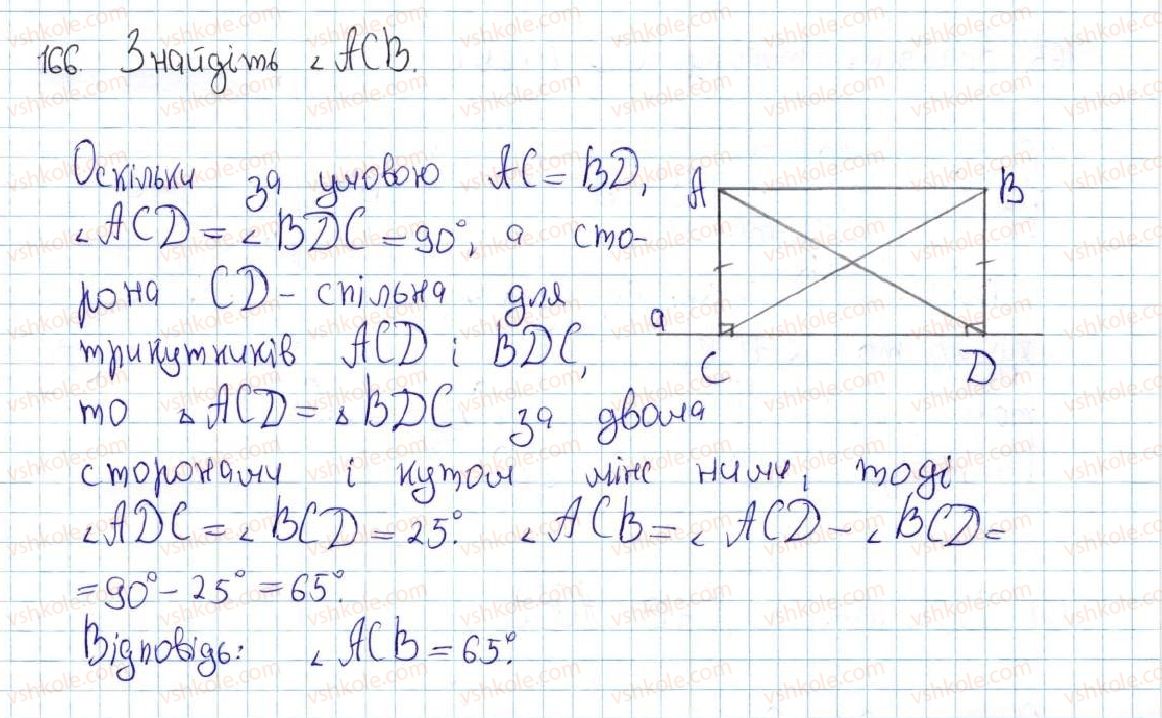 166. Знайдіть ∠ACB.
Оскільки за умовою AC = BD,
∠ACD = ∠BDC = 90°, а сто-
рона CD – спільна для
трикутників ACD і BDC,
то △ACD = △BDC за двома
сторонами і кутом між ними, тоді
∠ADC = ∠BCD = 25°. ∠ACB = ∠ACD – ∠BCD =
= 90° – 25° = 65°.
Відповідь: ∠ACB = 65°.
A B
a
C D
vshkole.com